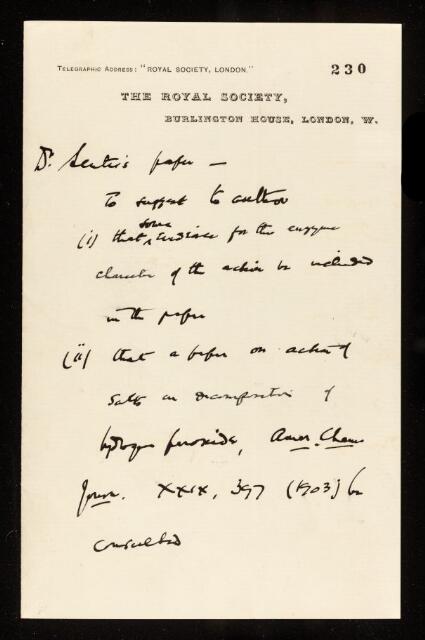 TELEGRAPHIC ADDRESS: "ROYAL SOCIETY, LONDON."
230
THE ROYAL SOCIETY,
BURLINGTON HOUSE, LONDON, W.
Dr Senter's paper —
To suggest to author
some
(i) that evidence for the enzyme
character of the action be included
in the paper
(ii) that a paper on action of
salts on decomposition of
hydrogen peroxide, Amer. Chem.
Journ. XXIX, 397 (1903) be
consulted